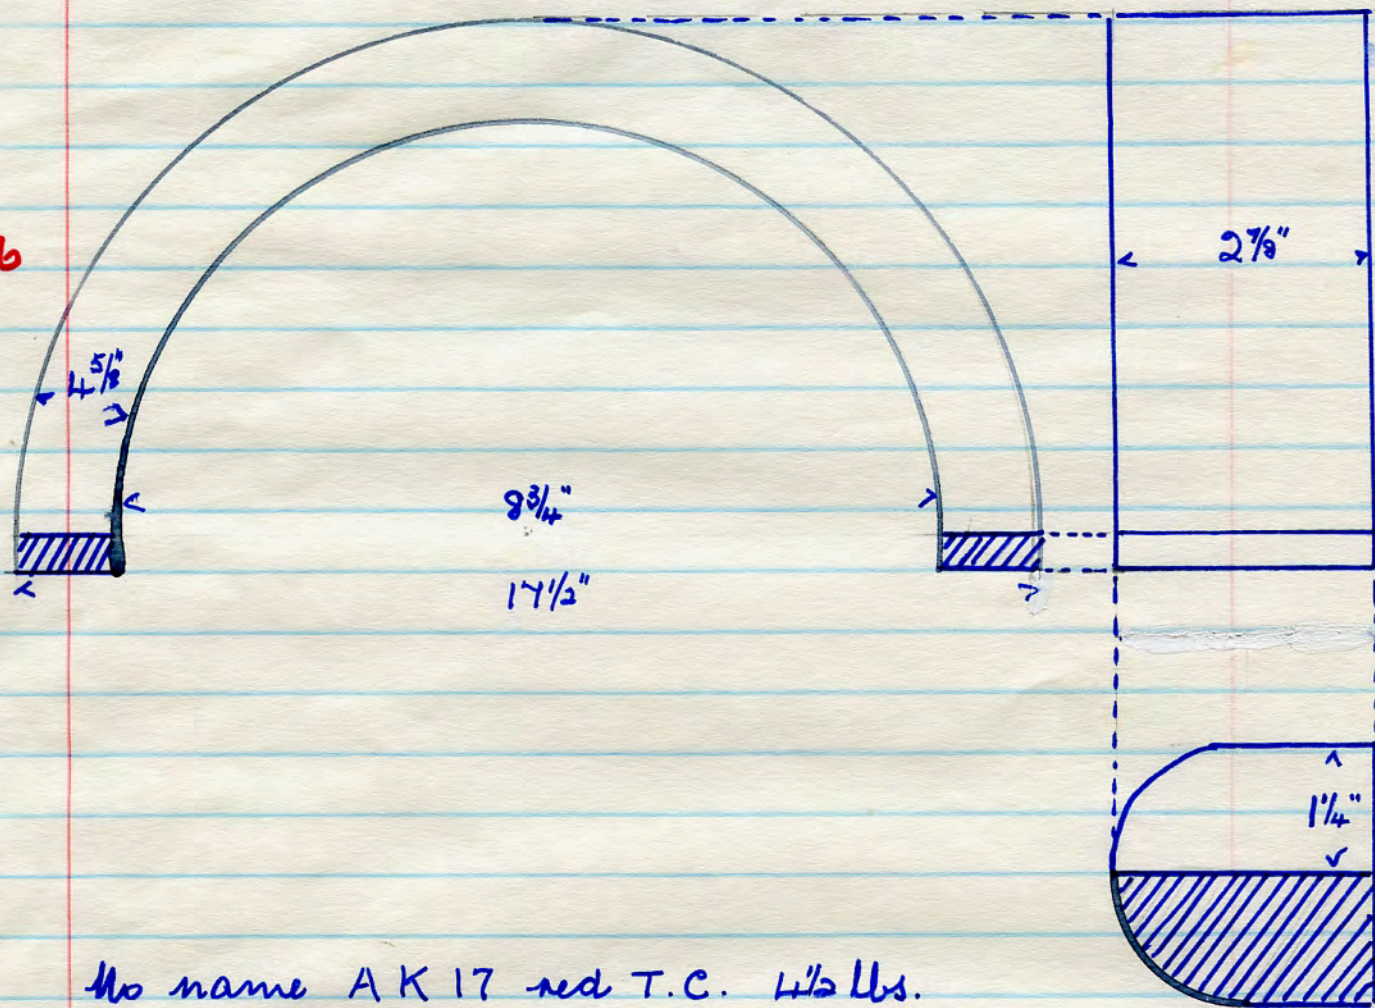 2 7/8"
4 5/8"
8 3/4"
17 1/2"
1 1/4"
No name A K 17 red T.C. 4 1/2 lbs.